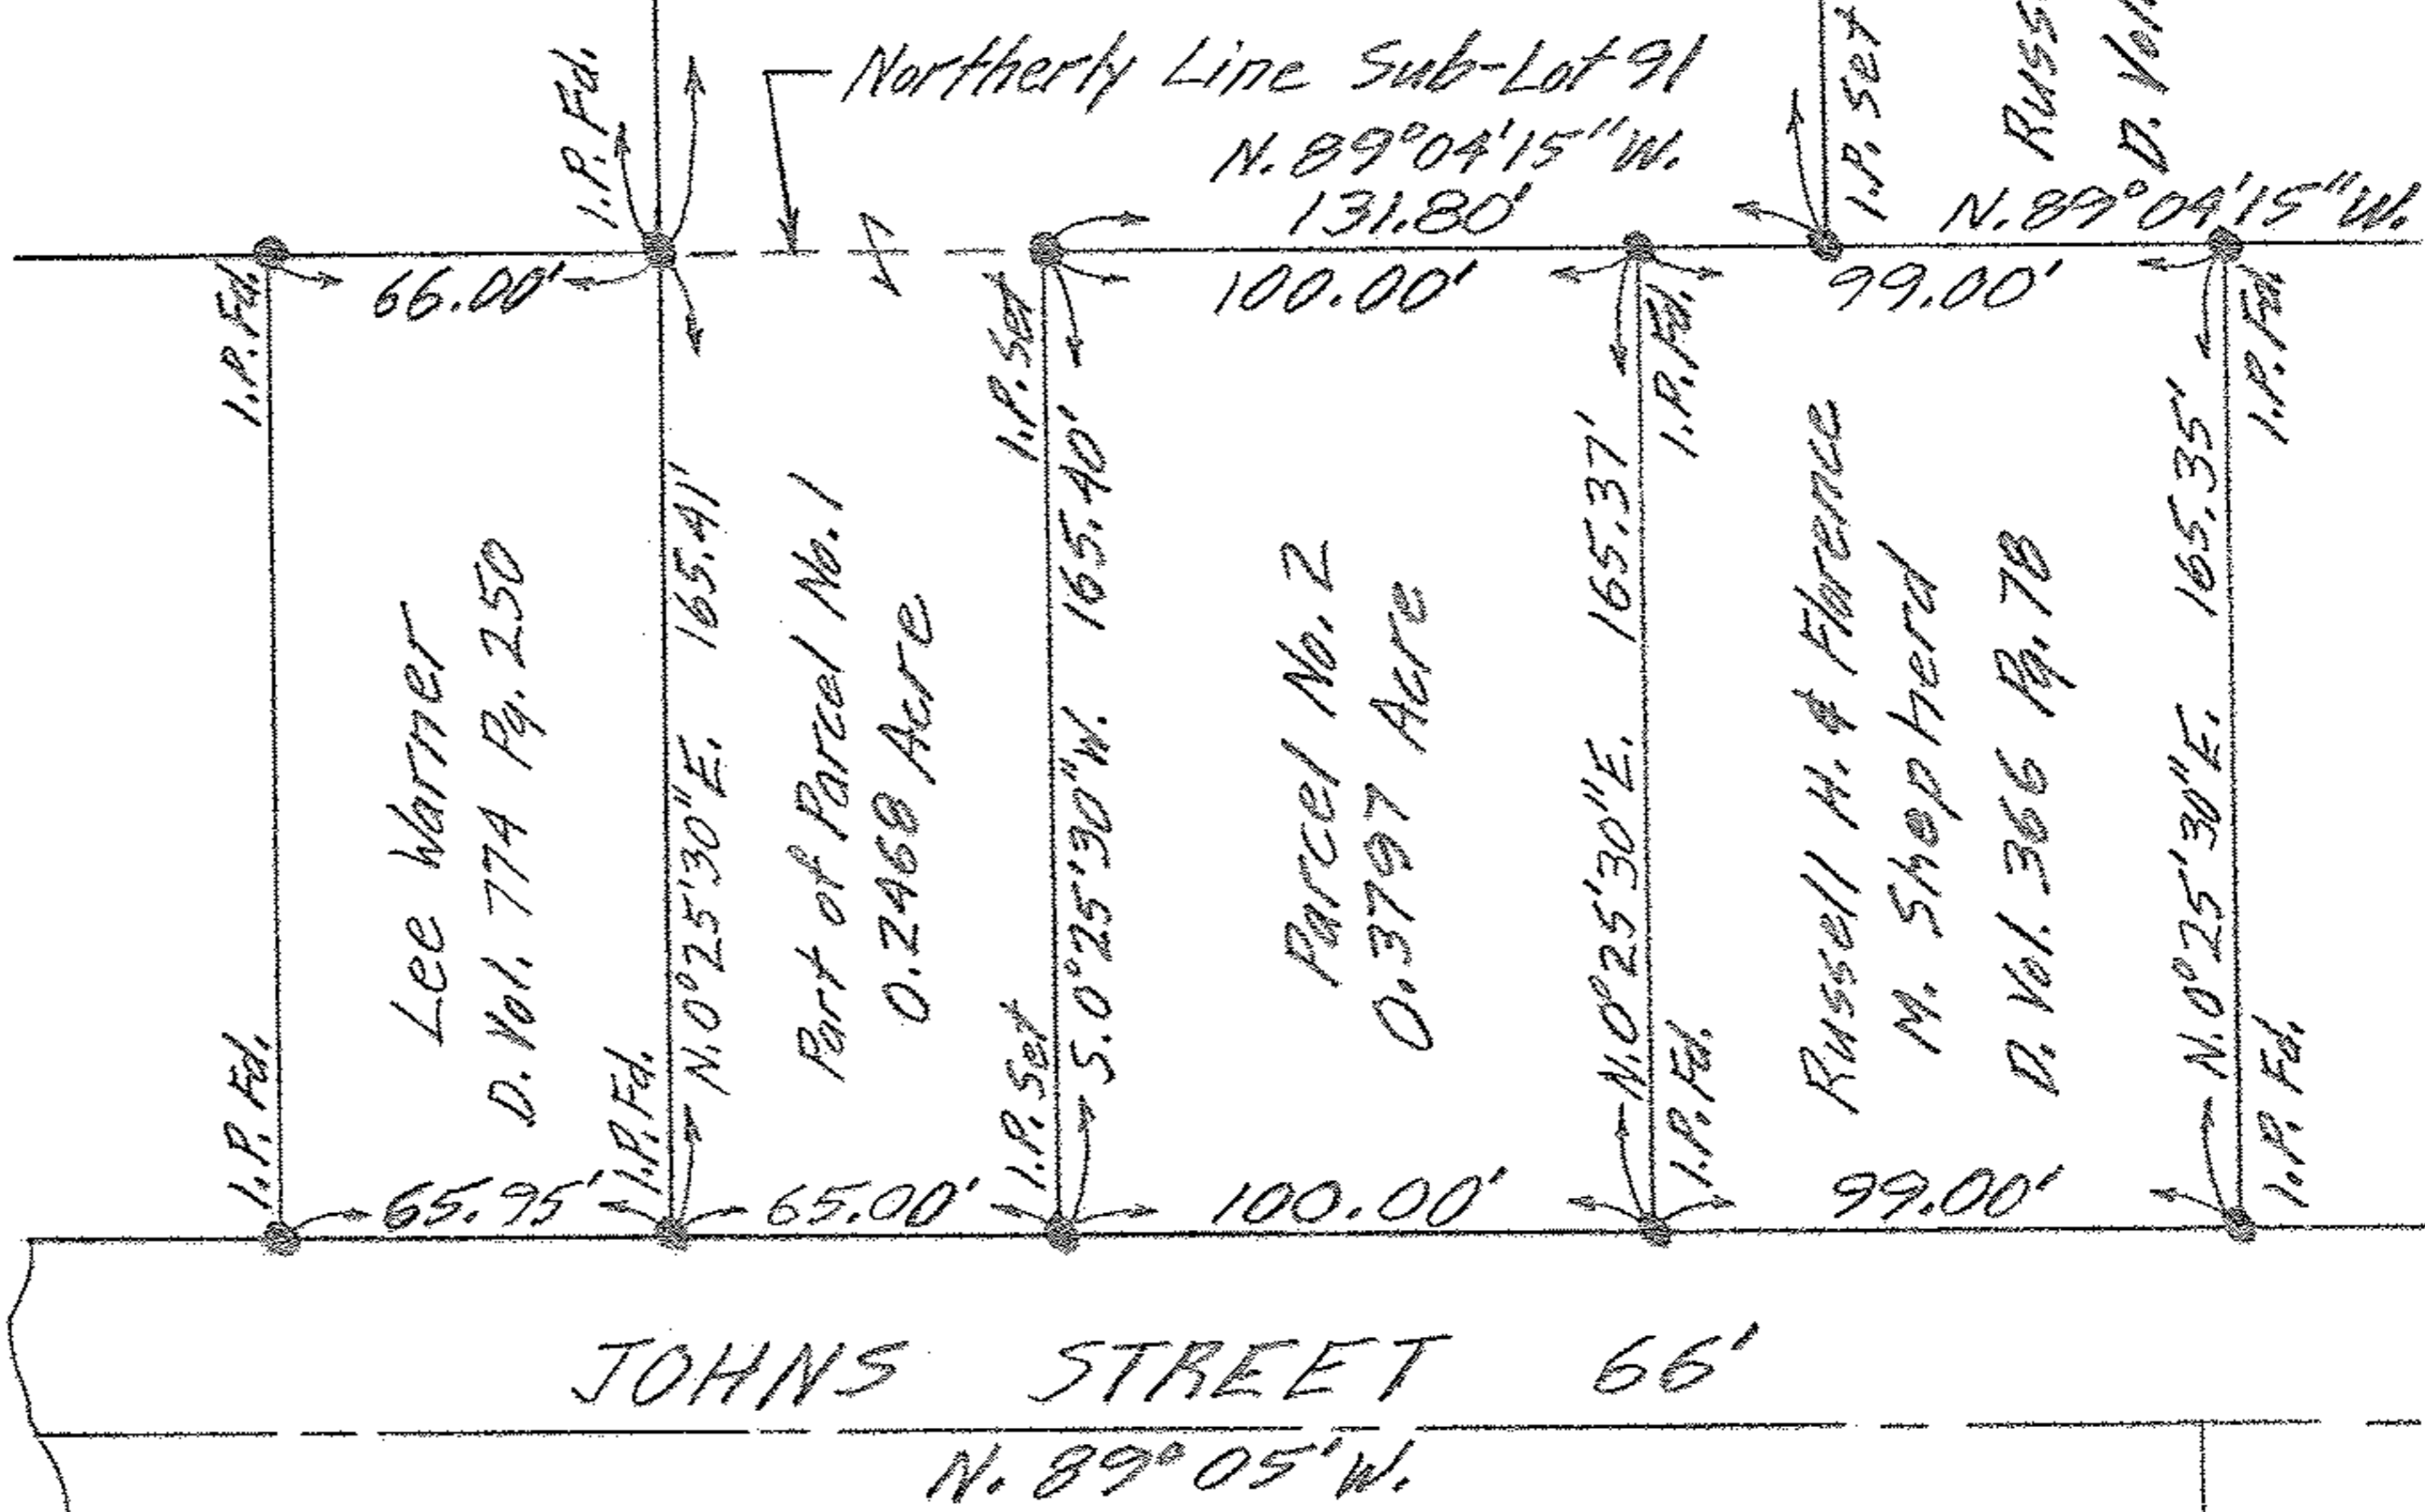 I.P. Fd.
Northerly Line Sub-Lot 91
N. 89°04'15" W.
131.80'
I.P. Set
D. Vol.
N. 89°04'15" W.
66.00'
100.00'
99.00'
I.P. Fd.
I.P. Set
I.P. Fd.
I.P. Fd.
Lee Warner
D. Vol. 774 Pg. 250
N. 0°25'30" E. 165.41'
Part of Parcel No. 1
0.2468 Acre
S. 0°25'30" W. 165.40'
Parcel No. 2
0.3797 Acre
N. 0°25'30" E. 165.37'
Russell H. & Florence
M. Shepherd
D. Vol. 366 Pg. 78
N. 0°25'30" E. 165.35'
I.P. Fd.
I.P. Fd.
I.P. Set
I.P. Fd.
I.P. Fd.
65.95'
65.00'
100.00'
99.00'
JOHNS STREET 66'
N. 89°05' W.